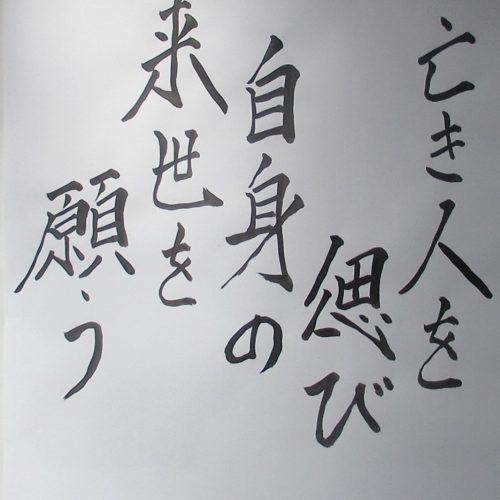 亡き人を
偲び
自身の
来世を
願う